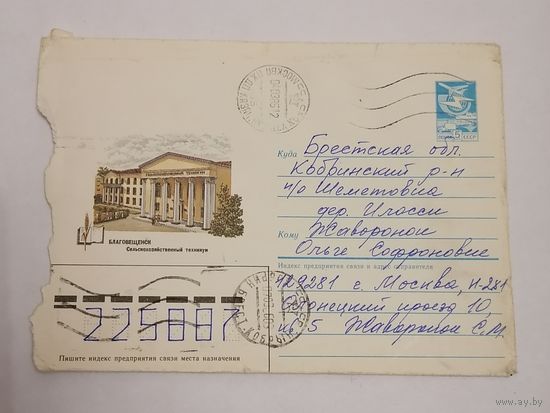 ПОЧТА 5 СССР
Куда Брестская обл.
Кобринский р-н
п/о Шеметовка
дер. Илосск
Кому Жаворонок
Ольге Софроновне
Индекс предприятия связи и адрес отправителя
129281 г. Москва, И-281
проезд 10,
кв 5 Жаворонок С.М.
БЛАГОВЕЩЕНСК
Сельскохозяйственный техникум
225887
Пишите индекс предприятия связи места назначения
www.ay.by